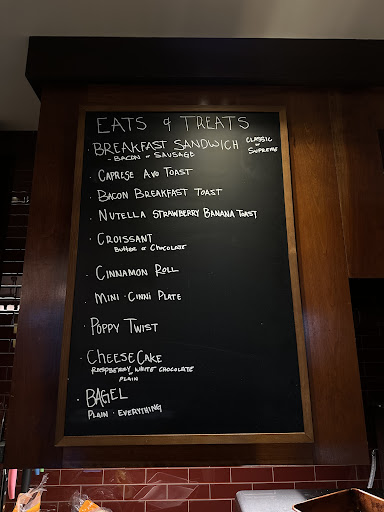 EATS & TREATS
• BREAKFAST SANDWICH CLASSIC or SUPREME
- BACON or SAUSAGE
• CAPRESE AVO TOAST
• BACON BREAKFAST TOAST
• NUTELLA STRAWBERRY BANANA TOAST
• CROISSANT
BUTTER or CHOCOLATE
• CINNAMON ROLL
• MINI • CINNI PLATE
• POPPY TWIST
• CHEESECAKE
RASPBERRY WHITE CHOCOLATE
or
PLAIN
• BAGEL
PLAIN • EVERYTHING